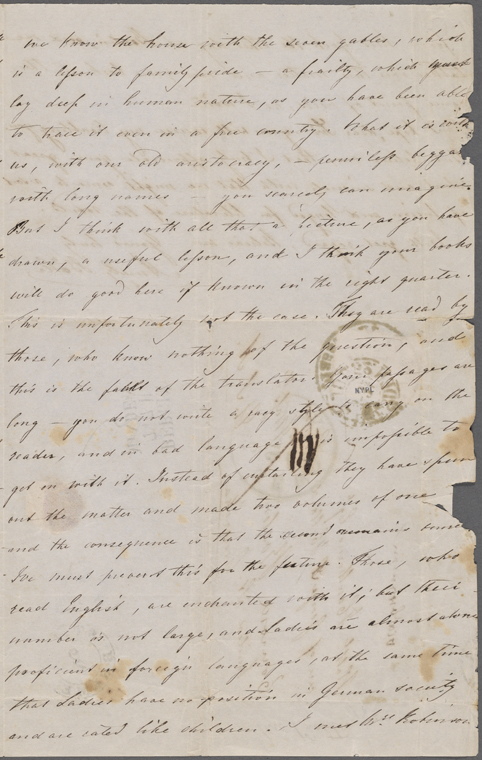 We know the house with the seven gables, which
is a lesson to family pride — a frailty, which must
lay deep in human nature, as you have been able
to trace it even in a free country. What it is with
us, with our old aristocracy, — penniless beggars
with long names — you scarcely can imagine.
But I think with all that a picture, as you have
drawn, a useful lesson, and I think your books
will do good here if known in the right quarter.
This is unfortunately not the case. They are read by
those, who know nothing of the question, and
this is the fault of the translator. Your passages are
long — you do not write a racy style to on the
reader, and in bad language it is impossible to
get on with it. Instead of they have spun
out the matter and made two volumes of one
and the consequence is that the second remains
We must prevent this for the future. Those, who
read English, are enchanted with it; but their
number is not large, and Ladies are almost alone
proficient in foreign languages, at the same time
that Ladies have no position in German society
and are rated like children. I Mrs Robinson
NYPL